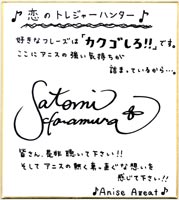 ♪恋のトレジャーハンター♪
好きなフレーズは「カクゴしろ!!」です。
ここにアニスの強い気持ちが
詰まっているから…。
Satomi
Hanamura
皆さん、是非聴いて下さい!!
そしてアニスの熱く真っ直ぐな想いを
感じて下さい!!
♪Anise Azeat♪